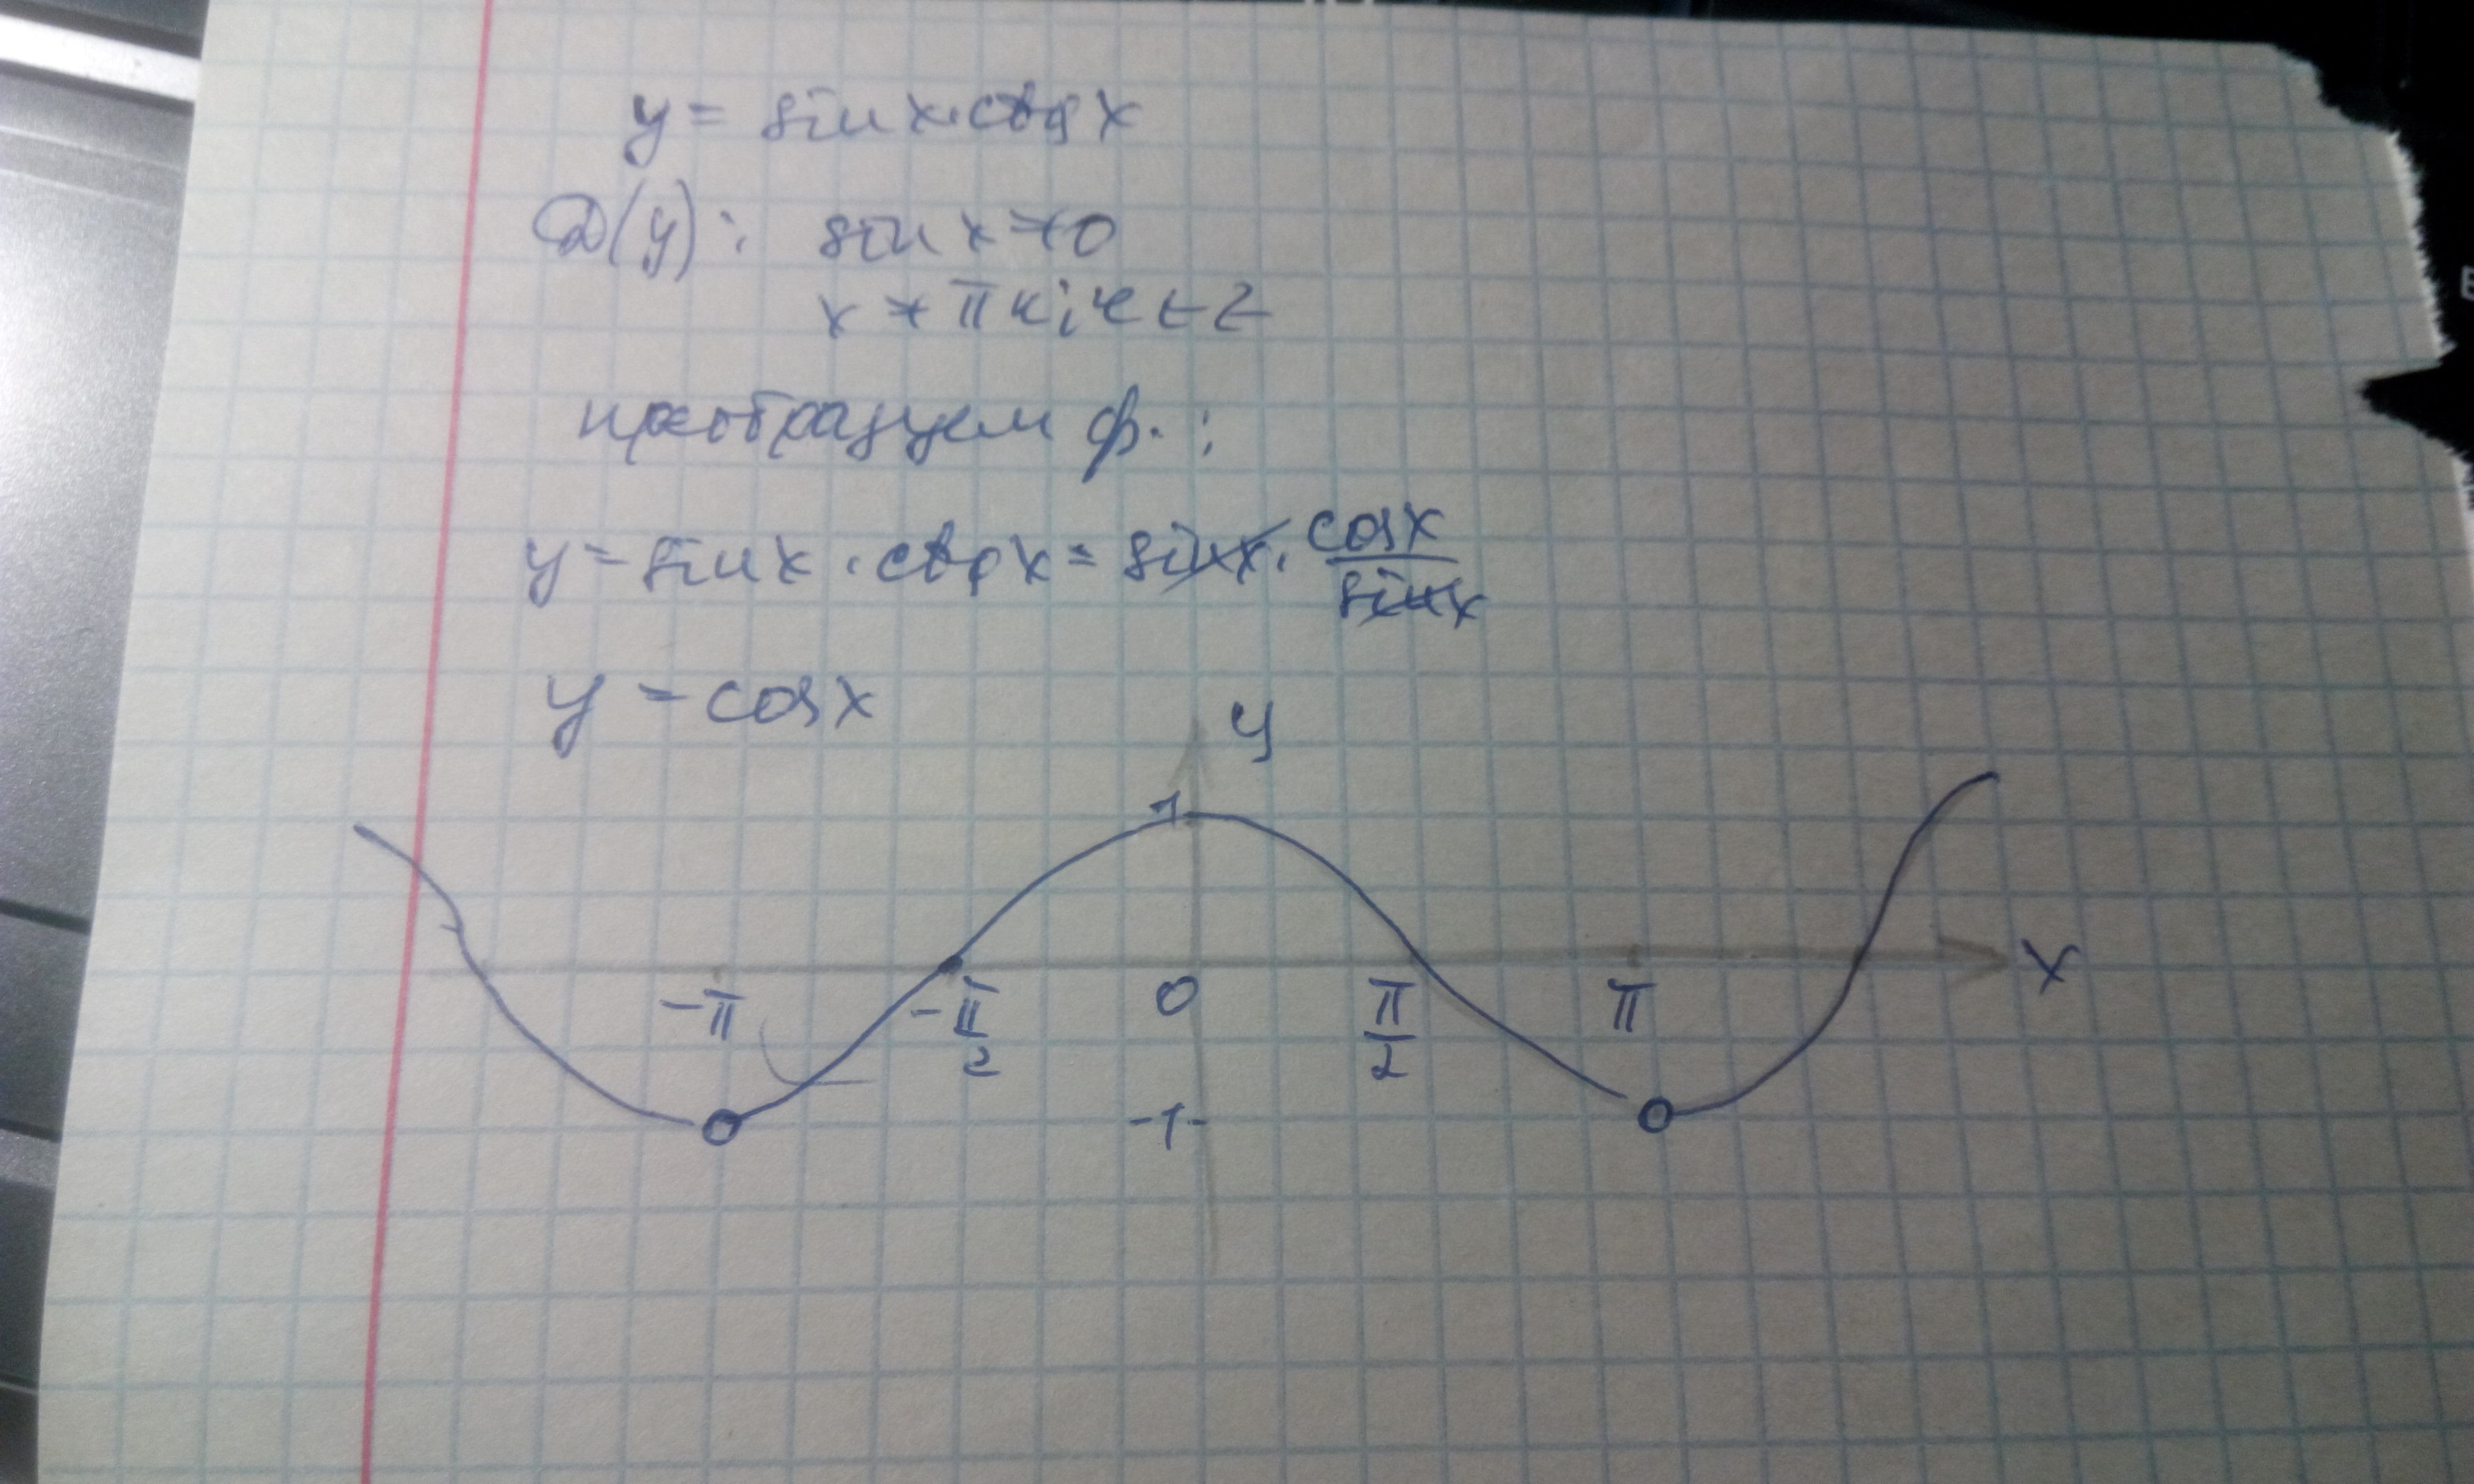 y = sin x · ctg x
D(y): sin x ≠ 0
x ≠ πк; к ∈ Z
преобразуем ф. :
y = sin x · ctg x = sin x · cos x / sin x
y = cos x
y
1
-π -π/2 0 π/2 π x
-1